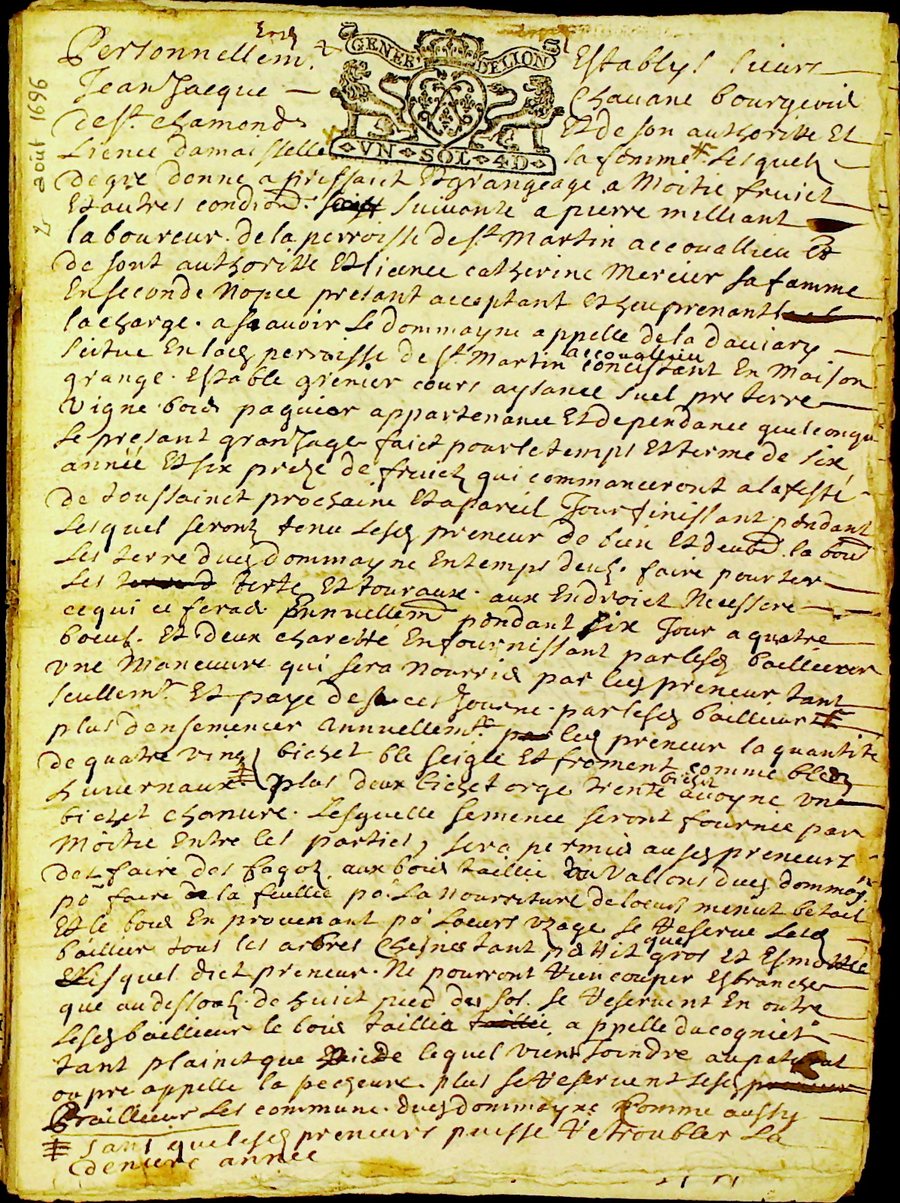 2 aout 1696
GENER DELION
VN SOL 4D
Personnellemt. Establys sieurs
Jean Jacque Chavane bourgeois
de st. chamond Et de son authoritte Et
Lience damaiselle la femme Lesquels
de gre donne a prissaict Et grangeage a Moitie fruict
Et autres condiond. suivante a pierre milliant
laboureur. de la perroisse de st. Martin accouallieu Et
de sont authoritte Et lience catherine Mercier sa famme
En seconde Nopce presant acceptant Et
la charge. a scavoir Le dommayne appelle de la daviary
scitue En lad perroisse de st. Martin accoualieu concistant En Maison
grange. Estable grenier cours aysance suel pre terre
vigne. bois paquier appartenance Et dependance quelconque
Le presant granjage faict pour le temps Et terme de six
année Et six prize de fruict qui commanceront a la feste
de toussainct prochaine Et a pareil Jour finissant pendant
Lesquel seront tenu Lesd preneur de bien Et deubd. la bour
Les terre dud dommayne En temps deub. faire pourter
Les terte Et touraux. aux Endroict Necessere
ce qui ce fera Annuellemt pendant six Jour a quatre
boeuf. Et deux charette En fournissant par lesd baillieur
vne Maneuvre qui sera nourrie par led preneur tant
seullemt. Et paye de ses Journe. par lesd baillieur
plus densemencer annuellemt. led preneur la quantite
de quatre ving bichet ble seigle Et froment comme bled
huvernaux plus deux bichet orge trente bichet avoyne vne
bichet chanure. Lesquelle semence seront fournie par
Moitie Entre les parties, sera permis ausd preneurs
de faire des fagot aux bois taillie ou vallons dud dommay
po faire la feullie po. La nourriture de leurs menut betail
Et le bois En provenant po Leurs vzage se Reserve Led
baillier tous les arbres Chesnes tant petit que gros Et
Lesquel dict preneur. Ne pourront Rien couper Esbrancher
que au dessoub. de huict pied du sol. se Reservent En outre
Lesd baillieur le bois taillie taillie appelle du cogniet
tant plain que lequel vient Joindre au
ou pre appelle la pecheure. plus se Reservent Lesd
Baillieur Les commune. dud dommayne Comme aussy
sans que lesd preneurs puisse Retroubler La
derniere année